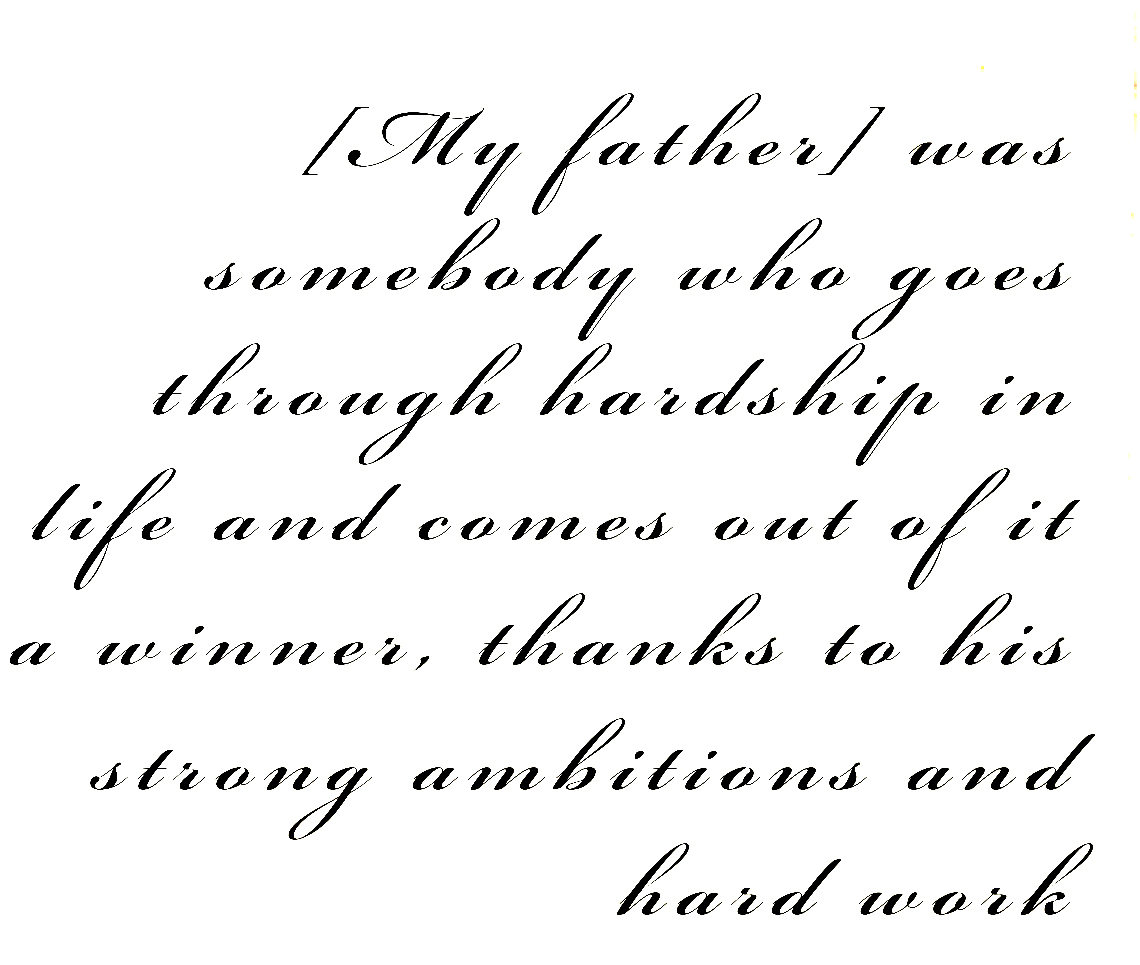 [My father] was
somebody who goes
through hardship in
life and comes out of it
a winner, thanks to his
strong ambitions and
hard work